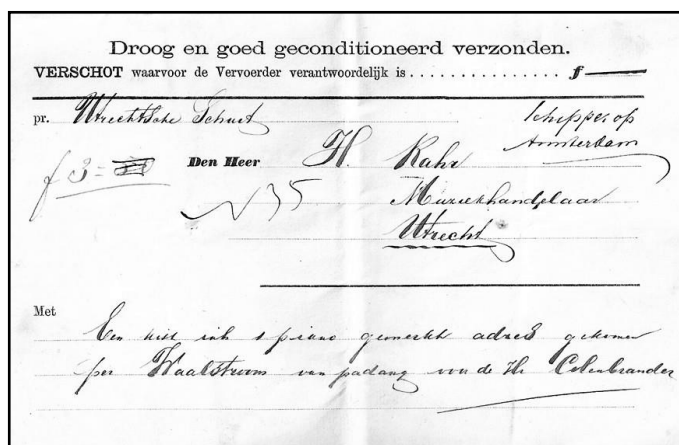 Droog en goed geconditioneerd verzonden.
VERSCHOT waarvoor de Vervoerder verantwoordelijk is . . . . . . . . . . . . . . . f
pr. Utrechtsche Schuit Schipper op
Amsterdam
f 3 =
Den Heer H. Rahr
N 35 Muziekhandelaar
Utrecht
Met
Een kist inh 1 piano gemerkt adres gekomen
per Waalstroom van padang van de Hr Colenbrander